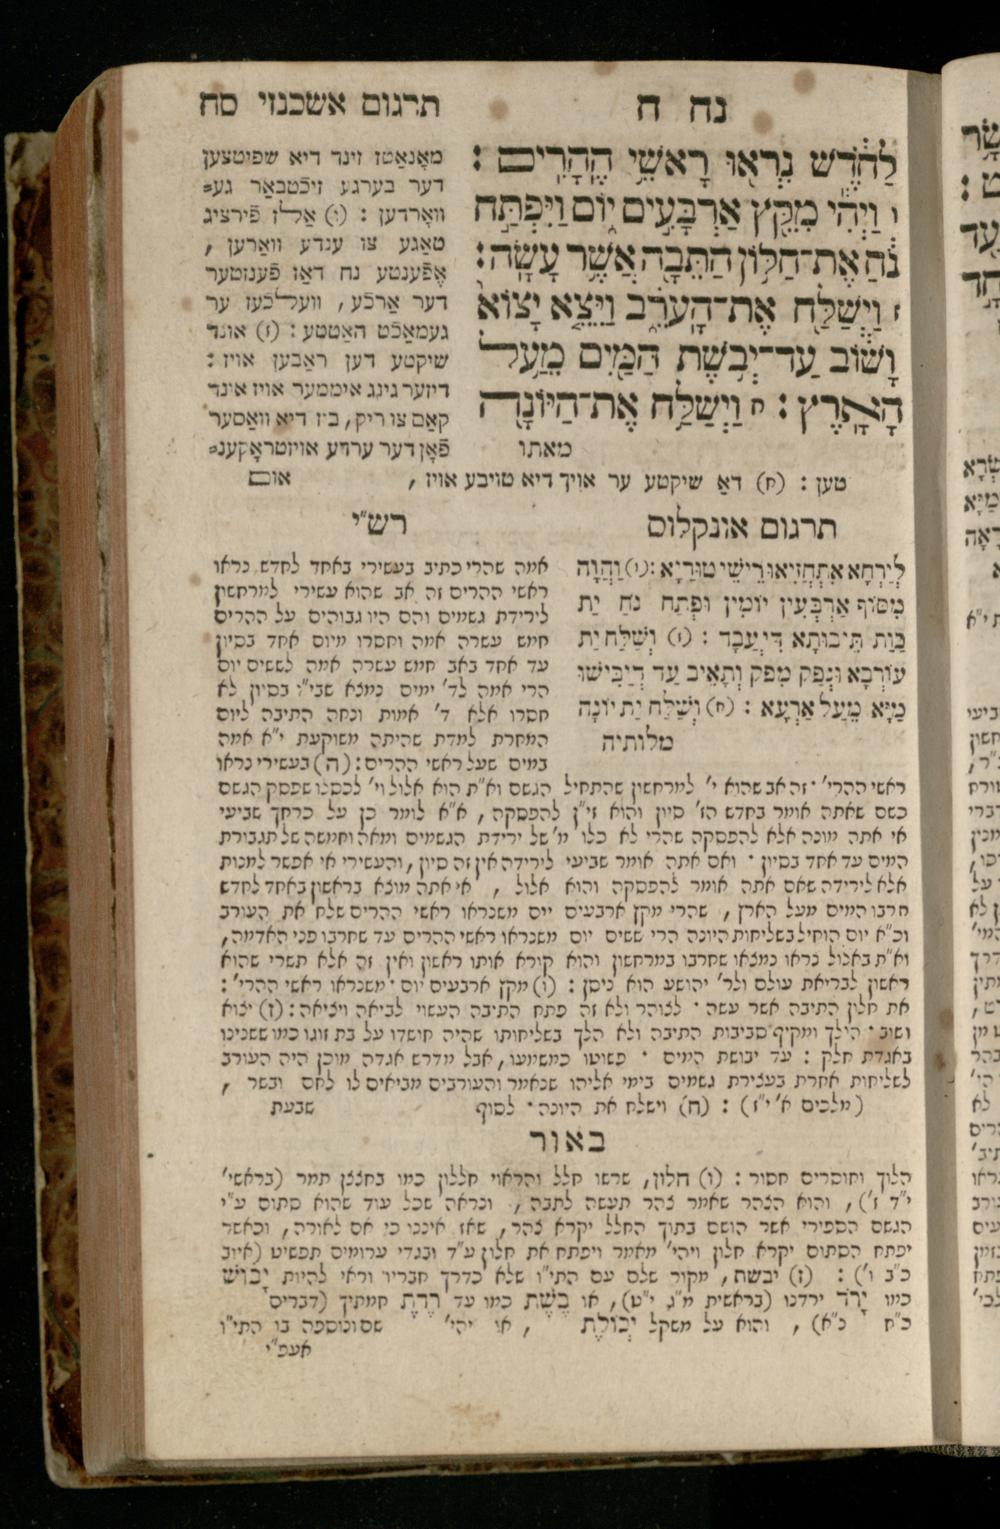 נח ח
תרגום אשכנזי סח
לַחֹדֶשׁ נִרְאוּ רָאשֵׁי הֶהָרִים :
ו וַיְהִי מִקֵּץ אַרְבָּעִים יוֹם וַיִּפְתַּח
נֹחַ אֶת־חַלּוֹן הַתֵּבָה אֲשֶׁר עָשָׂה :
ז וַיְשַׁלַּח אֶת־הָעֹרֵב וַיֵּצֵא יָצוֹא
וָשׁוֹב עַד־יְבֹשֶׁת הַמַּיִם מֵעַל
הָאָרֶץ : ח וַיְשַׁלַּח אֶת־הַיּוֹנָה
מאתו
מאָנאַטז זינד דיא שפיטצען
דער בערגע זיכֿטבאַר גע=
וואָרדען : (ו) אַלז פֿירציג
טאַגע צו ענדע וואַרען ,
אָפֿענטע נח דאַז פֿענזטער
דער אַרכֿע, וועלכֿעז ער
געמאַכֿט האַטטע : (ז) אונד
שיקטע דען ראַבען אויז :
דיזער גינג איממער אויז אונד
קאַם צוריק, ביז דיא וואַסער
פֿאָן דער ערדע אויזטראָקענ=
טען : (ח) דאַ שיקטע ער אויך דיא טויבע אויז , אום
תרגום אונקלוס
לְיַרְחָא אִתְחֲזִיאוּ רֵישֵׁי טוּרַיָּא : (ו) וַהֲוָה
מִסּוֹף אַרְבְּעִין יוֹמִין וּפְתַח נֹחַ יַת
כַּוַּת תֵּיבוּתָא דִּי עֲבָד : (ז) וְשַׁלַּח יַת
עוֹרְבָא וּנְפַק מִפַּק וְתָאֵיב עַד דְּיַבִּישׁוּ
מַיָּא מֵעַל אַרְעָא : (ח) וְשַׁלַּח יַת יוֹנָה
מלותיה
רש"י
אמה שהרי כתיב בעשירי באחד לחדש נראו
ראשי ההרים זה אב שהוא עשירי למרחשון
לירידת גשמים והם היו גבוהים על ההרים
חמש עשרה אמה וחסרו מיום אחד בסיון
עד אחד באב חמש עשרה אמה לששים יום
הרי אמה לד' ימים נמצא שבי"ו בסיון לא
חסרו אלא ד' אמות ונחה התיבה ליום
המחרת למדת שהיתה משוקעת י"א אמה
במים שעל ראשי ההרים : (ה) בעשירי נראו
ראשי ההרי' · זה אב שהוא י' למרחשון שהתחיל הגשם וא"ת הוא אלול וי' לכסלו שפסק הגשם
כשם שאתה אומר בחדש הז' סיון והוא זי"ן להפסקה , א"א לומר כן על כרחך שביעי
אי אתה מונה אלא להפסקה שהרי לא כלו מ' של ירידת הגשמים ומאה וחמשה של תגבורת
המים עד אחד בסיון · ואם אתה אומר שביעי לירידה אין זה סיון , והעשירי אי אפשר למנות
אלא לירידה שאם אתה אומר להפסקה והוא אלול , אי אתה מוצא בראשון באחד לחדש
חרבו המים מעל הארץ , שהרי מקץ ארבעים יום משנראו ראשי ההרים שלח את העורב
וכ"א יום הוחיל בשליחות היונה הרי ששים יום משנראו ראשי ההרים עד שחרבו פני האדמה,
וא"ת באלול נראו נמצאו שחרבו במרחשון והוא קורא אותו ראשון ואין זה אלא תשרי שהוא
ראשון לבריאת עולם ולר' יהושע הוא ניסן : (ו) מקץ ארבעים יום · משנראו ראשי ההרי' :
את חלון התיבה אשר עשה · לצוהר ולא זה פתח התיבה העשוי לביאה ויציאה : (ז) יצוא
ושוב · הולך ומקיף סביבות התיבה ולא הלך בשליחותו שהיה חושדו על בת זוגו כמו ששנינו
באגדת חלק : עד יבושת המים · פשוטו כמשמעו, אבל מדרש אגדה מוכן היה העורב
לשליחות אחרת בעצירת גשמים בימי אליהו שנאמר והעורבים מביאים לו לחם ובשר ,
(מלכים א' י"ז) : (ח) וישלח את היונה · לסוף שבעת
באור
הלוך וחוסרים חסור : (ו) חלון, שרשו חלל והראוי חללון כמו בחצצן תמר (בראשי'
י"ד ז'), והוא הצהר שאמר צהר תעשה לתבה , ונראה שכל עוד שהוא סתום ע"י
הגשם הספירי אשר הושם בתוך החלל יקרא צהר, שאז איננו כי אם לאורה, וכאשר
יפתח הסתום יקרא חלון ויהי' מאמר ויפתח את חלון ע"ד ובגדי ערומים תפשיט (איוב
כ"ב ו') : (ז) יבשת, מקור שלם עם התי"ו שלא כדרך חבריו וראי להיות יָבוֹשׁ
כמו יָרֹד ירדנו (בראשית מ"ג י"ט), או בֶּשֶׁת כמו עד רֶדֶת חמתיך (דברים
כ"ח נ"א) , והוא על משקל יְכוֹלֶת , או יהי' שם ונוספה בו התי"ו
אעפ"י